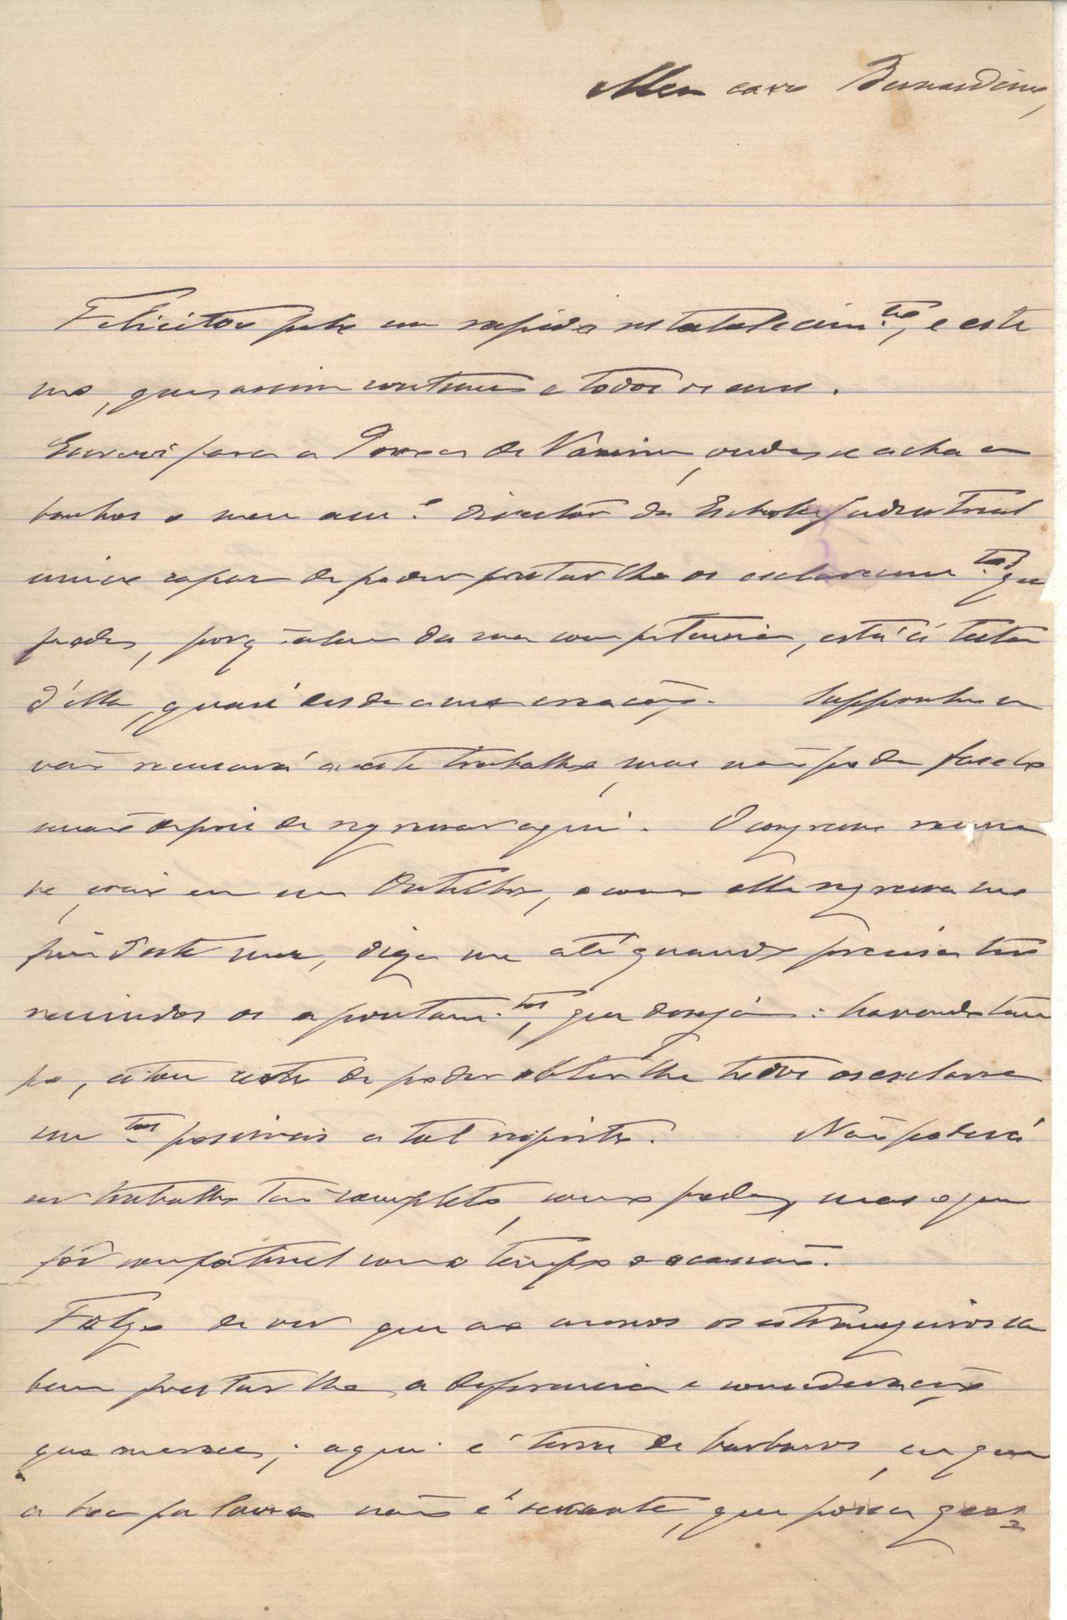 Meu caro Bernardino,
Felicito-o pelo seu rapido restabelecim.to, e esti
mo, que assim continue e todos os seus.
Escrevi para a Povoa de Varzim, onde se acha a
banhos o meu am.o director da Eschola Industrial
unico capaz de poder prestar-lhe os esclarecimen.tos que
pede, porq alem da sua competencia, está á testa
d'ella, quasi desde a sua creação. Supponho
não recusará a este trabalho, mas não póde fazel-o
senão depois de regressar aqui. O congresso reune
se, creio eu em Outubro, e como elle regressa no
fim d'este mez, diga-me até quando precisa ter
reunidos os apontam.tos, que deseja: havendo tem
po, estou certo de poder obter-lhe todos os esclareci
men.tos possiveis a tal respeito. Não poderá
ser trabalho tão completo, como pede, mas o que
fôr compativel com o tempo e occasião.
Folgo de ver que ao menos os estrangeiros sa
bem prestar-lhe a deferencia e consideração
que merece; aqui é terra de barbaros, em que
a boa palavra não é semente, que possa ger